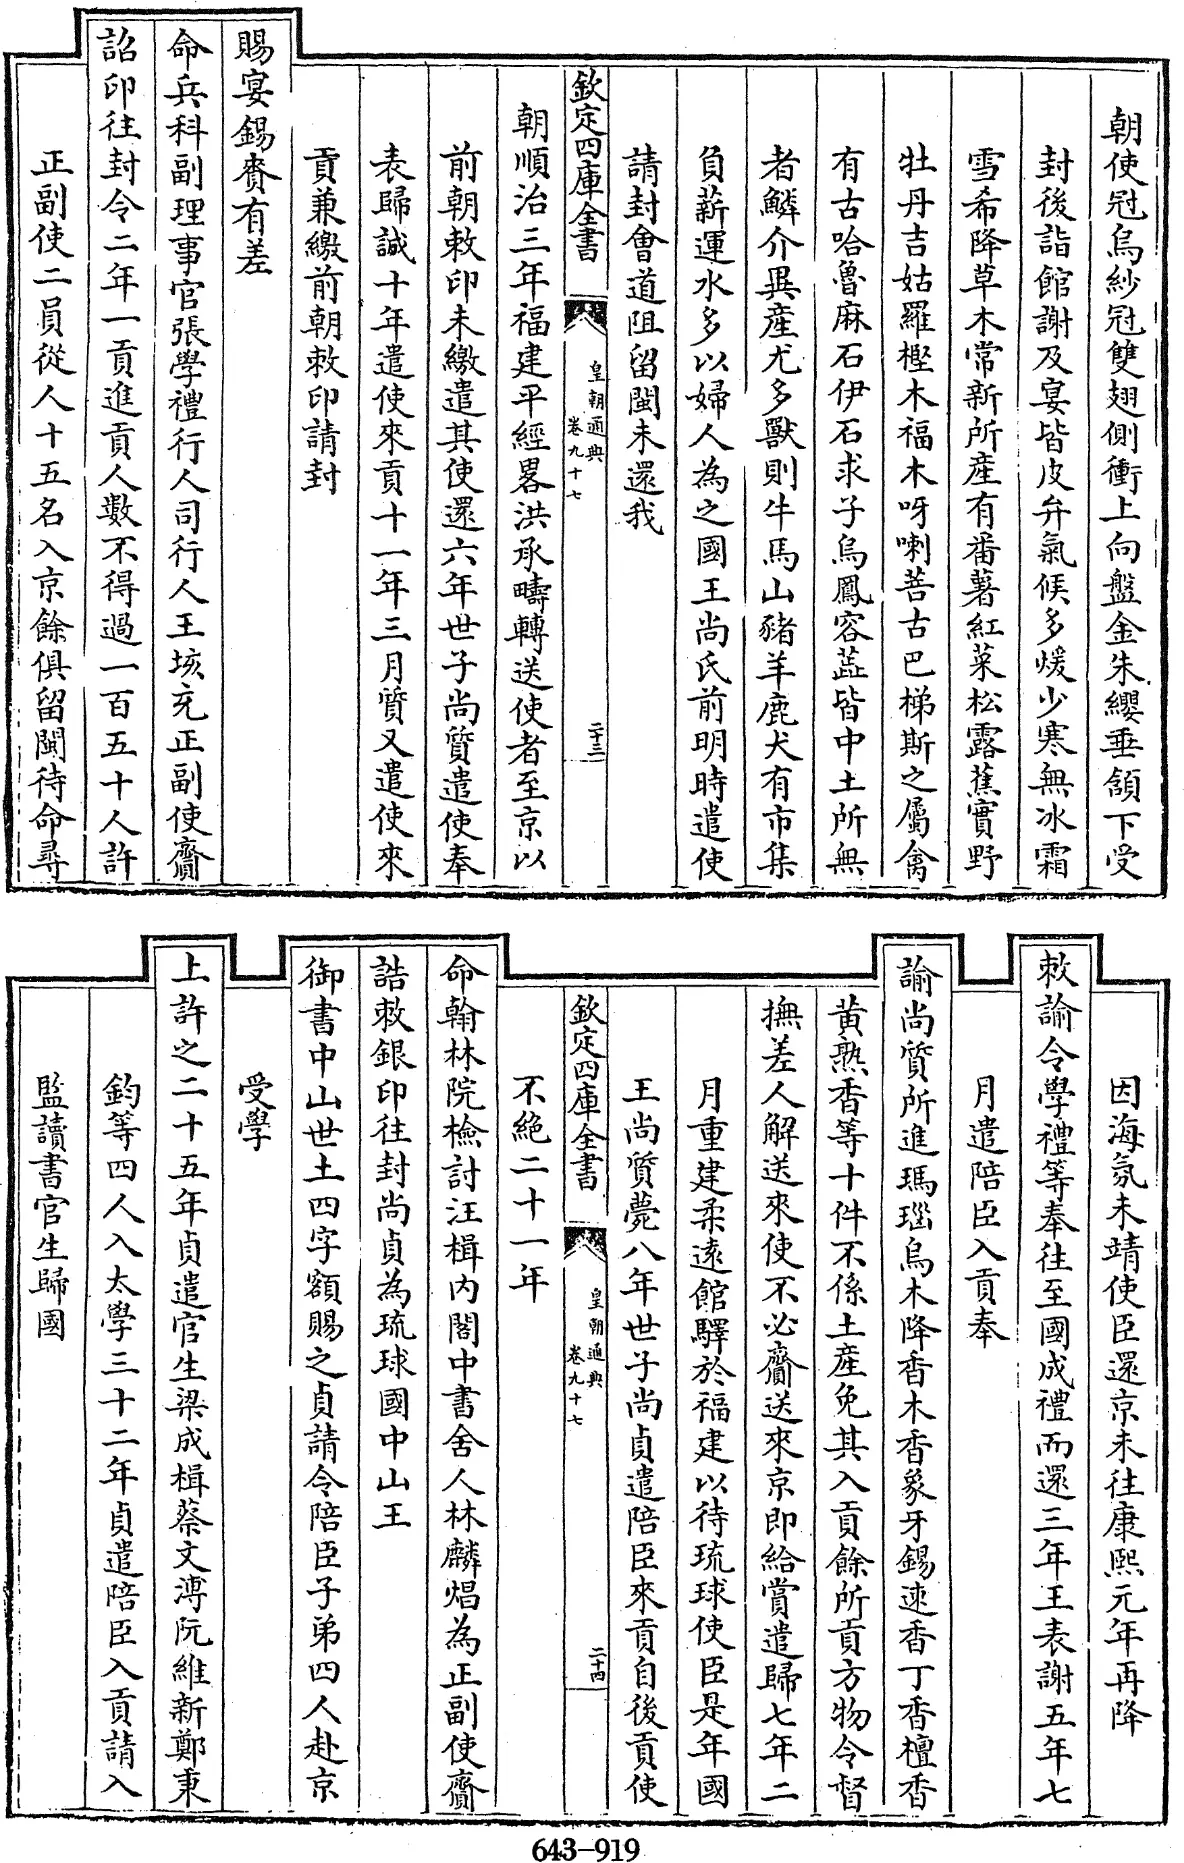 朝使冠烏紗冠雙翅側衝上向盤金朱纓垂頷下受
封後詣館謝及宴皆皮弁氣候多煖少寒無冰霜
雪希降草木常新所產有番薯紅菜松露蕉實野
牡丹吉姑羅樫木福木呀喇菩古巴梯斯之屬禽
有古哈魯麻石伊石求子烏鳳容蕋皆中土所無
者鱗介異產尤多獸則牛馬山豬羊鹿犬有市集
負薪運水多以婦人為之國王尚氏前明時遣使
請封會道阻留閩未還我
欽定四庫全書
皇朝通典
卷九十七
二十三
朝順治三年福建平經畧洪承疇轉送使者至京以
前朝敕印未繳遣其使還六年世子尚質遣使奉
表歸誠十年遣使來貢十一年三月質又遣使來
貢兼繳前朝敕印請封
賜宴錫賚有差
命兵科副理事官張學禮行人司行人王垓充正副使齎
詔印往封令二年一貢進貢人數不得過一百五十人許
正副使二員從人十五名入京餘俱留閩待命尋
因海氛未靖使臣還京未往康熙元年再降
敕諭令學禮等奉往至國成禮而還三年王表謝五年七
月遣陪臣入貢奉
諭尚質所進瑪瑙烏木降香木香象牙錫速香丁香檀香
黃熟香等十件不係土產免其入貢餘所貢方物令督
撫差人解送來使不必齎送來京即給賞遣歸七年二
月重建柔遠館驛於福建以待琉球使臣是年國
王尚質薨八年世子尚貞遣陪臣來貢自後貢使
欽定四庫全書
皇朝通典
卷九十七
二十四
不絕二十一年
命翰林院檢討汪楫內閣中書舍人林麟焻為正副使齎
誥敕銀印往封尚貞為琉球國中山王
御書中山世土四字額賜之貞請令陪臣子弟四人赴京
受學
上許之二十五年貞遣官生梁成楫蔡文溥阮維新鄭秉
鈞等四人入太學三十二年貞遣陪臣入貢請入
監讀書官生歸國
643-919